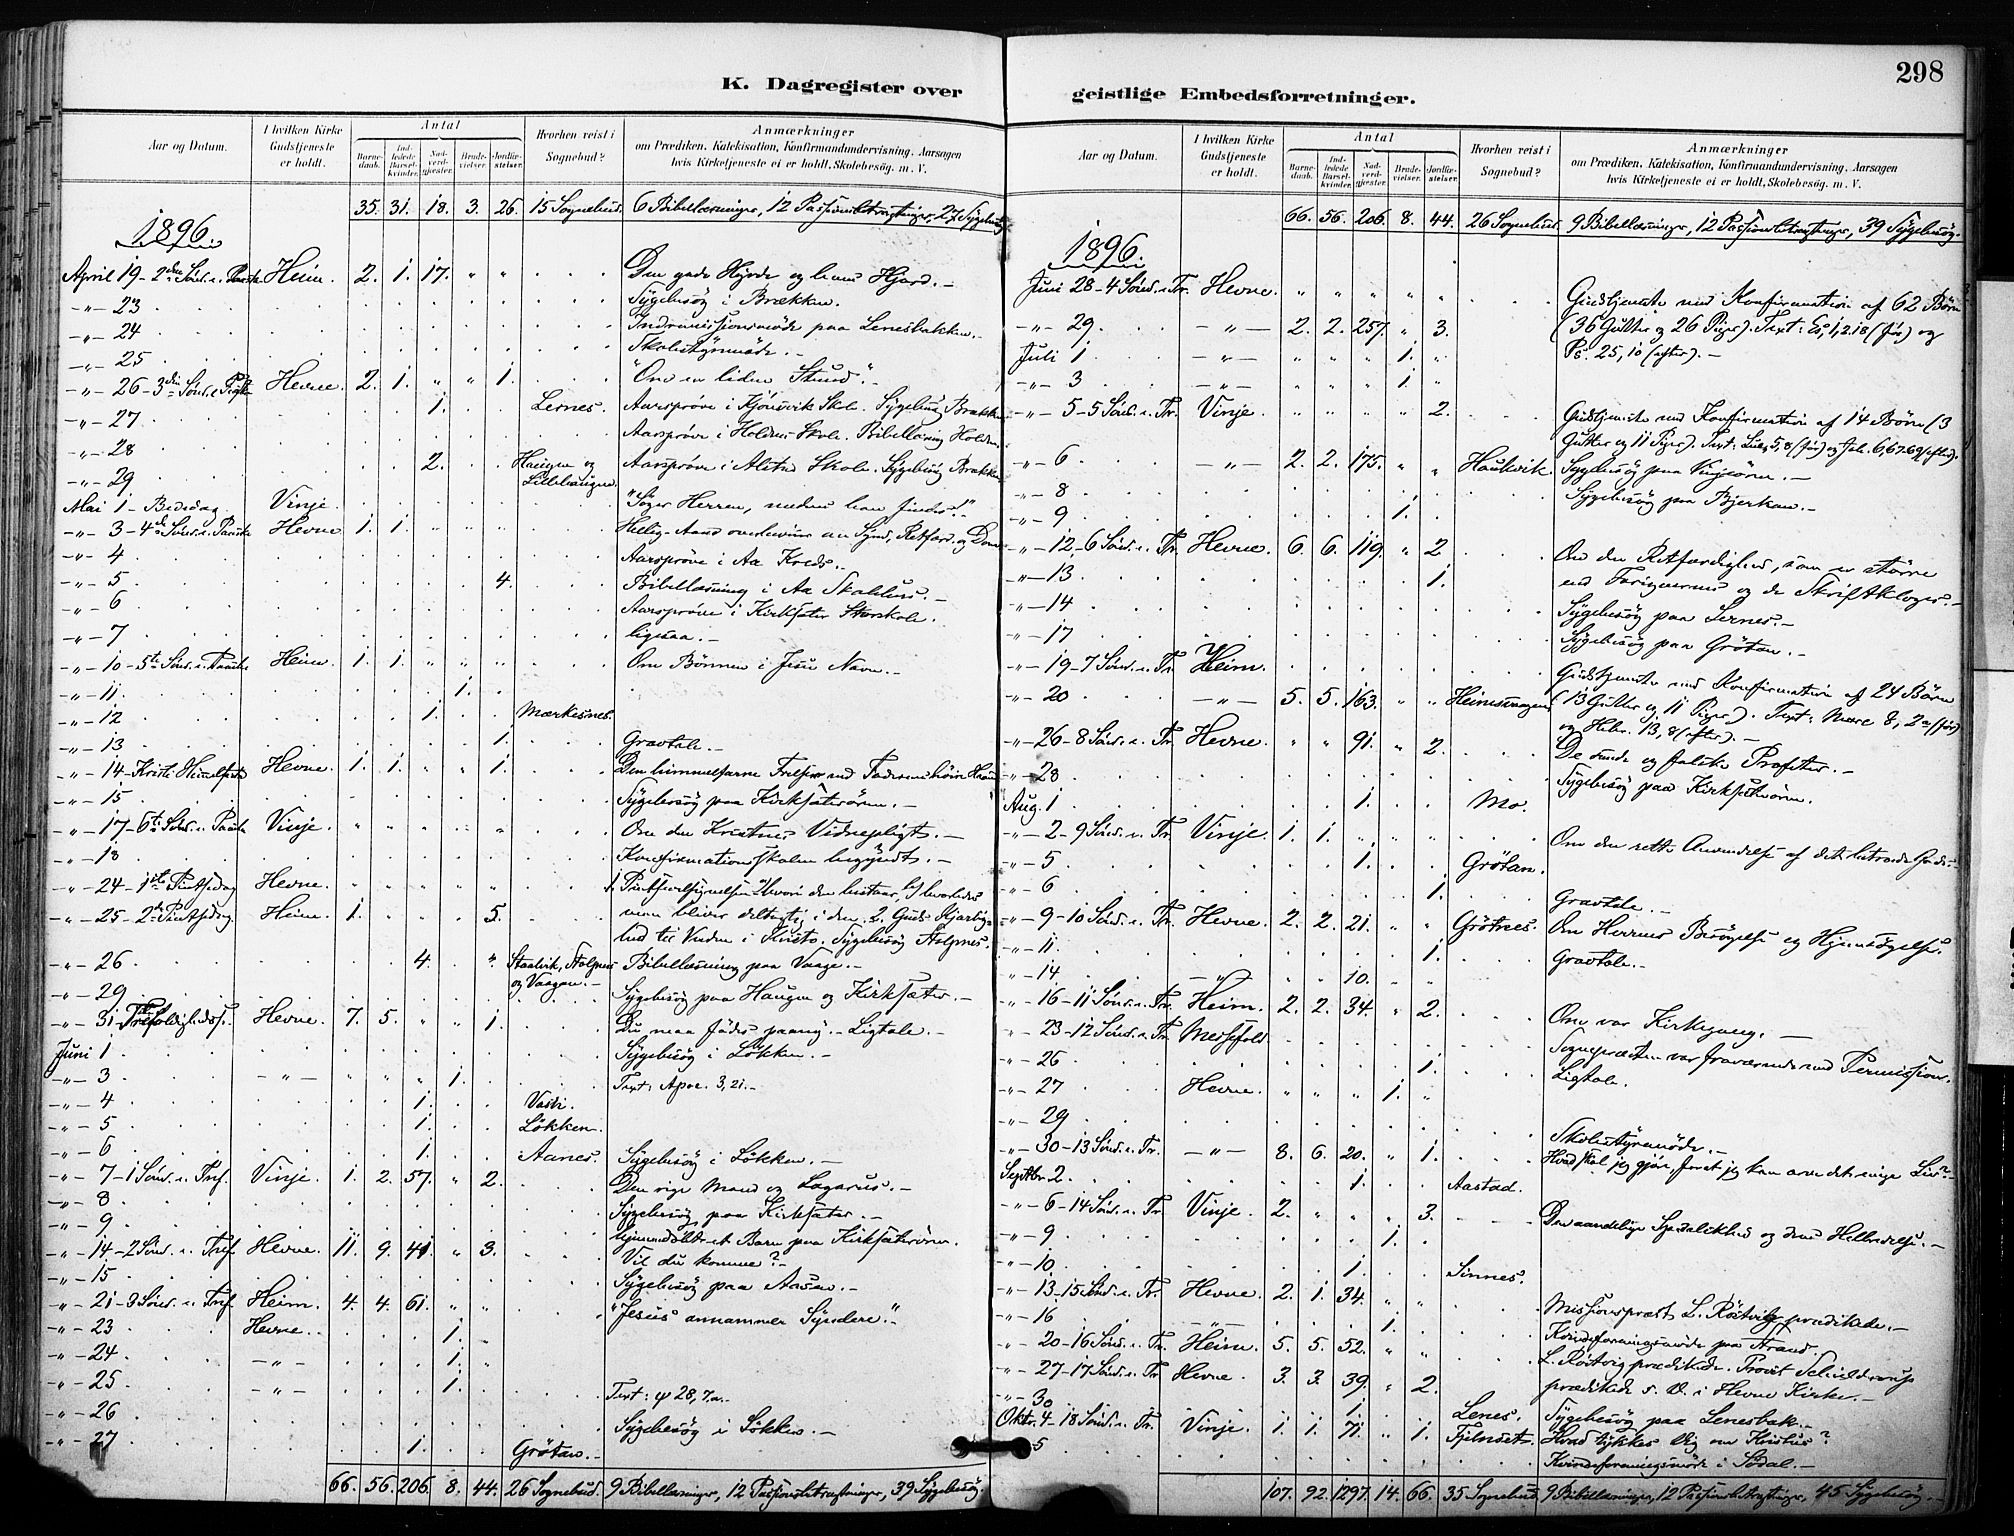 298
K. Dagregister over
geistlige Embedsforretninger.
Aar og Datum.
I hvilken Kirke Gudstjeneste er holdt.
Antal
Barnedaab.
Indledede Barselkvinder.
Nadverdgjester.
Brudevielser.
Jordfæstelser.
Hvorhen reist i Sognebud?
Anmærkninger
om Prædiken, Katekisation, Konfirmandundervisning, Aarsagen
hvis Kirketjeneste ei er holdt, Skolebesøg. m. V.
35. 31. 18. 3. 26. 15 Sognebud. 6 Bibellæsninger, 12 Passionsbetragtninger, 27 Sygebesøg
1896.
April 19 - 2den Sønd. e. Paaske Heim. 2. 1. 17. " " Den gode Hyrde og hans Hjord. -
-"- 23 Sygebesøg i Brækken.
-"- 24 Indremissionsmøde paa Lenesbakken.
-"- 25 Skolestyrmøde. -
-"- 26 - 3die Sønd. e. Paaske Hevne. 2. 1. " " 1. "Om en liden Stund". -
-"- 27 1. Lernes. Aarsprøve i Kjønsvik Skole. Sygebesøg Brækken
-"- 28 Aarsprøve i Holden Skole. Bibellæsning Holden.
-"- 29 2. Haugen og Lillehaugen. Aarsprøve i Skole. Sygebesøg Brækken
Mai 1 - Bededag Vinje. "Søger Herren, medens han findes!"
-"- 3 - 4de Sønd. e. Paaske Hevne 1. 1. " " " Hellig-Aand overbeviser om Synd, Retfærd. og Dom
-"- 4 Aarsprøve i Aa Kreds. -
-"- 5 4. Bibellæsning i Aa Skolehus. -
-"- 6 Aarsprøve i Kirksæter Storskole.
-"- 7 ligesaa. -
-"- 10 - 5te Sønd. e. Paaske Heim 1. 1. " " " Om Bønnen i Jesu Navn. -
-"- 11. 1.
-"- 12 1. Mærkesnes.
-"- 13 1. Gravtale. -
-"- 14 - Kristi Himmelfart Hevne 1. 1. " " 1. Den himmelfarne Frelser ved Faderens høire Haand
-"- 15 Sygebesøg paa Kirksæterøren. -
-"- 17 - 6te Sønd. e. Paaske Vinje " " " " " Om den Kristnes Vidnepligt. -
-"- 18 Konfirmationsskolen begyndt. -
-"- 24 - 1ste Pintsedag Hevne. " " " " " 1. Pintsevelsignelsen a) hvori den bestaar, b) hvorledes
-"- 25 - 2den Pintsedag Heim 1. " " " 5. man bliver delagtig i den. 2. Guds Kjærlig-
hed til Verden i Kristo. Sygebesøg Stolpnes.
-"- 26 4. " Staalvik, Stolpnes og Vaagen. - Bibellæsning paa Vaage. -
-"- 29 Sygebesøg paa Haugen og Kirksæter. -
-"- 31 - Trefoldighedss. Hevne. 7. 5. " " 1. Du maa fødes paany. - Ligtale. -
Juni 1 Sygebesøg i Løkken. -
-"- 3 -"- " " " 1. Text: Apoc. 3, 21. -
-"- 4 1. Vasli.
-"- 5 1. Løkken.
-"- 6 1. Aanes. Sygebesøg i Løkken. -
-"- 7 - 1 Sønd. e. Tref. Vinje. 1. 2. 57. " 2. Den rige Mand og Lazarus. -
-"- 8 Sygebesøg paa Kirksæter. -
-"- 9 hjemmedøbt et Barn paa Kirksæterøren.
-"- 14 - 2 Sønd. e. Tref. Hevne. 11. 9. 41. " 3. Vil du komme? -
-"- 15 Sygebesøg paa Aasan. -
-"- 21 - 3 Sønd. e. Tref. Heim. 4. 4. 61. " " "Jesus annammer Syndere." -
-"- 23 Hevne. 1.
-"- 24 -"- 1. "
-"- 25 -"- 1. Text: ψ 28, 7a.
-"- 26 Sygebesøg i Løkken. -
-"- 27 1. Grøtan.
66. 56. 206. 8. 44. 26 Sognebud. 9 Bibellæsninger, 12 Passionsbetragtninger, 39 Sygebesøg.
Aar og Datum.
I hvilken Kirke Gudstjeneste er holdt.
Antal
Barnedaab.
Indledede Barselkvinder.
Nadverdgjester.
Brudevielser.
Jordfæstelser.
Hvorhen reist i Sognebud?
Anmærkninger
om Prædiken, Katekisation, Konfirmandundervisning, Aarsagen
hvis Kirketjeneste ei er holdt, Skolebesøg. m. V.
66. 56. 206. 8. 44. 26 Sognebud. 9 Bibellæsninger, 12 Passionsbetragtninger, 39 Sygebesøg.
1896.
Juni 28 - 4 Sønd. e. Tr. Hevne. " " " " " Gudstjeneste med Konfirmation af 62 Børn
-"- 29. -"- 2. 2. 257. " 3. (36 Gutter og 26 Piger). Text: Es. 1, 2.18 (før) og
Juli 1 -"- " " " 1. " Ps. 25, 10 (efter). -
-"- 3 -"- " " " 1. "
-"- 5 - 5 Sønd. e. Tr. Vinje. " " " " 2. Gudstjeneste med Konfirmation af 14 Børn (3
Gutter og 11 Piger). Text: Luc. 5, 8 (før) og Joh. 6, 67-69 (efter).
-"- 6 -"- 2. 2. 175. " " Haukvik. Sygebesøg paa Vinjeøren. -
-"- 8 Sygebesøg paa Bjerkan. -
-"- 9 1.
-"- 12 - 6 Sønd. e. Tr. Hevne. 6. 6. 119. " 2 Om den Retfærdighed, som er større
-"- 13 1. end Farisæernes og de Skriftkloges. -
-"- 14 Sygebesøg paa Lernes. -
-"- 17 Sygebesøg paa Grøtan. -
-"- 19 - 7 Sønd. e. Tr. Heim. Gudstjeneste med Konfirmation af 24 Børn
-"- 20 -"- 5. 5. 163. " " Heimsvaagen (13 Gutter og 11 Piger). Text: Marc. 8, 2a (før)
og Hebr. 13, 8 (efter). -
-"- 26 - 8 Sønd. e. Tr. Hevne. " " 91. " 2. De sande og falske Profeter. -
-"- 28 Sygebesøg paa Kirksæterøren.
Aug. 1 1. Mo.
-"- 2 - 9 Sønd. e. Tr. Vinje. 1. 1. " " " Om den rette Anvendelse af det betroede Gods.
-"- 5 1. Grøtan.
-"- 6 1. Gravtale. -
-"- 9 - 10 Sønd. e. Tr. Hevne. 2. 2. 21. " " Grøtnes. Om Herrens Besøgelse og Hjemsøgelse.
-"- 11. 1. Gravtale. -
-"- 14 -"- 10. "
-"- 16 - 11 Sønd. e. Tr. Heim. 2. 2. 34. " 2. Om vor Kirkegang. -
-"- 23 - 12 Sønd. e. Tr. Messefald Sognepræsten var fraværende med Permission.
-"- 26 1. Ligtale.
-"- 27 Hevne. " " " 1. "
-"- 29 Skolestyrmøde. -
-"- 30 - 13 Sønd. e. Tr. -"- 8. 6. 20. " 1. Hvad skal jeg gjøre, foret jeg kan arve det evige Liv? -
Septbr 2. 1. Aastad.
-"- 6 - 14 Sønd. e. Tr. Vinje. 2. " " " 3. Den aandelige Spedalskhed og dens Helbredelse. -
-"- 9 1.
-"- 10 1. Sinnes.
-"- 13 - 15 Sønd. e. Tr. Hevne. 2. 1. 34. " " Missionspræst L. Røstvig prædikede. -
-"- 16 -"- 1. Kvindeforeningsmøde paa Strand.
-"- 20 - 16 Sønd. e. Tr. Heim. 5. 5. 52. " " L. Røstvig prædikede. Provst Schielderup
-"- 27 - 17 Sønd. e. Tr. Hevne. 3. 3. 39. " 2. prædikede s. D. i Hevne Kirke. -
-"- 30 1. Lenes. Sygebesøg paa Lenesbak. -
Oktr. 4 - 18 Sønd. e. Tr. Vinje. 1. 1. 71. " 1. Fjelnset. Hvad tykkes Dig om Kristus?
5 Kvindeforeningsmøde i Sødal. -
107. 92. 1297. 14. 66. 35 Sognebud. 9 Bibellæsninger, 12 Passionsbetragtninger, 45 Sygebesøg. -